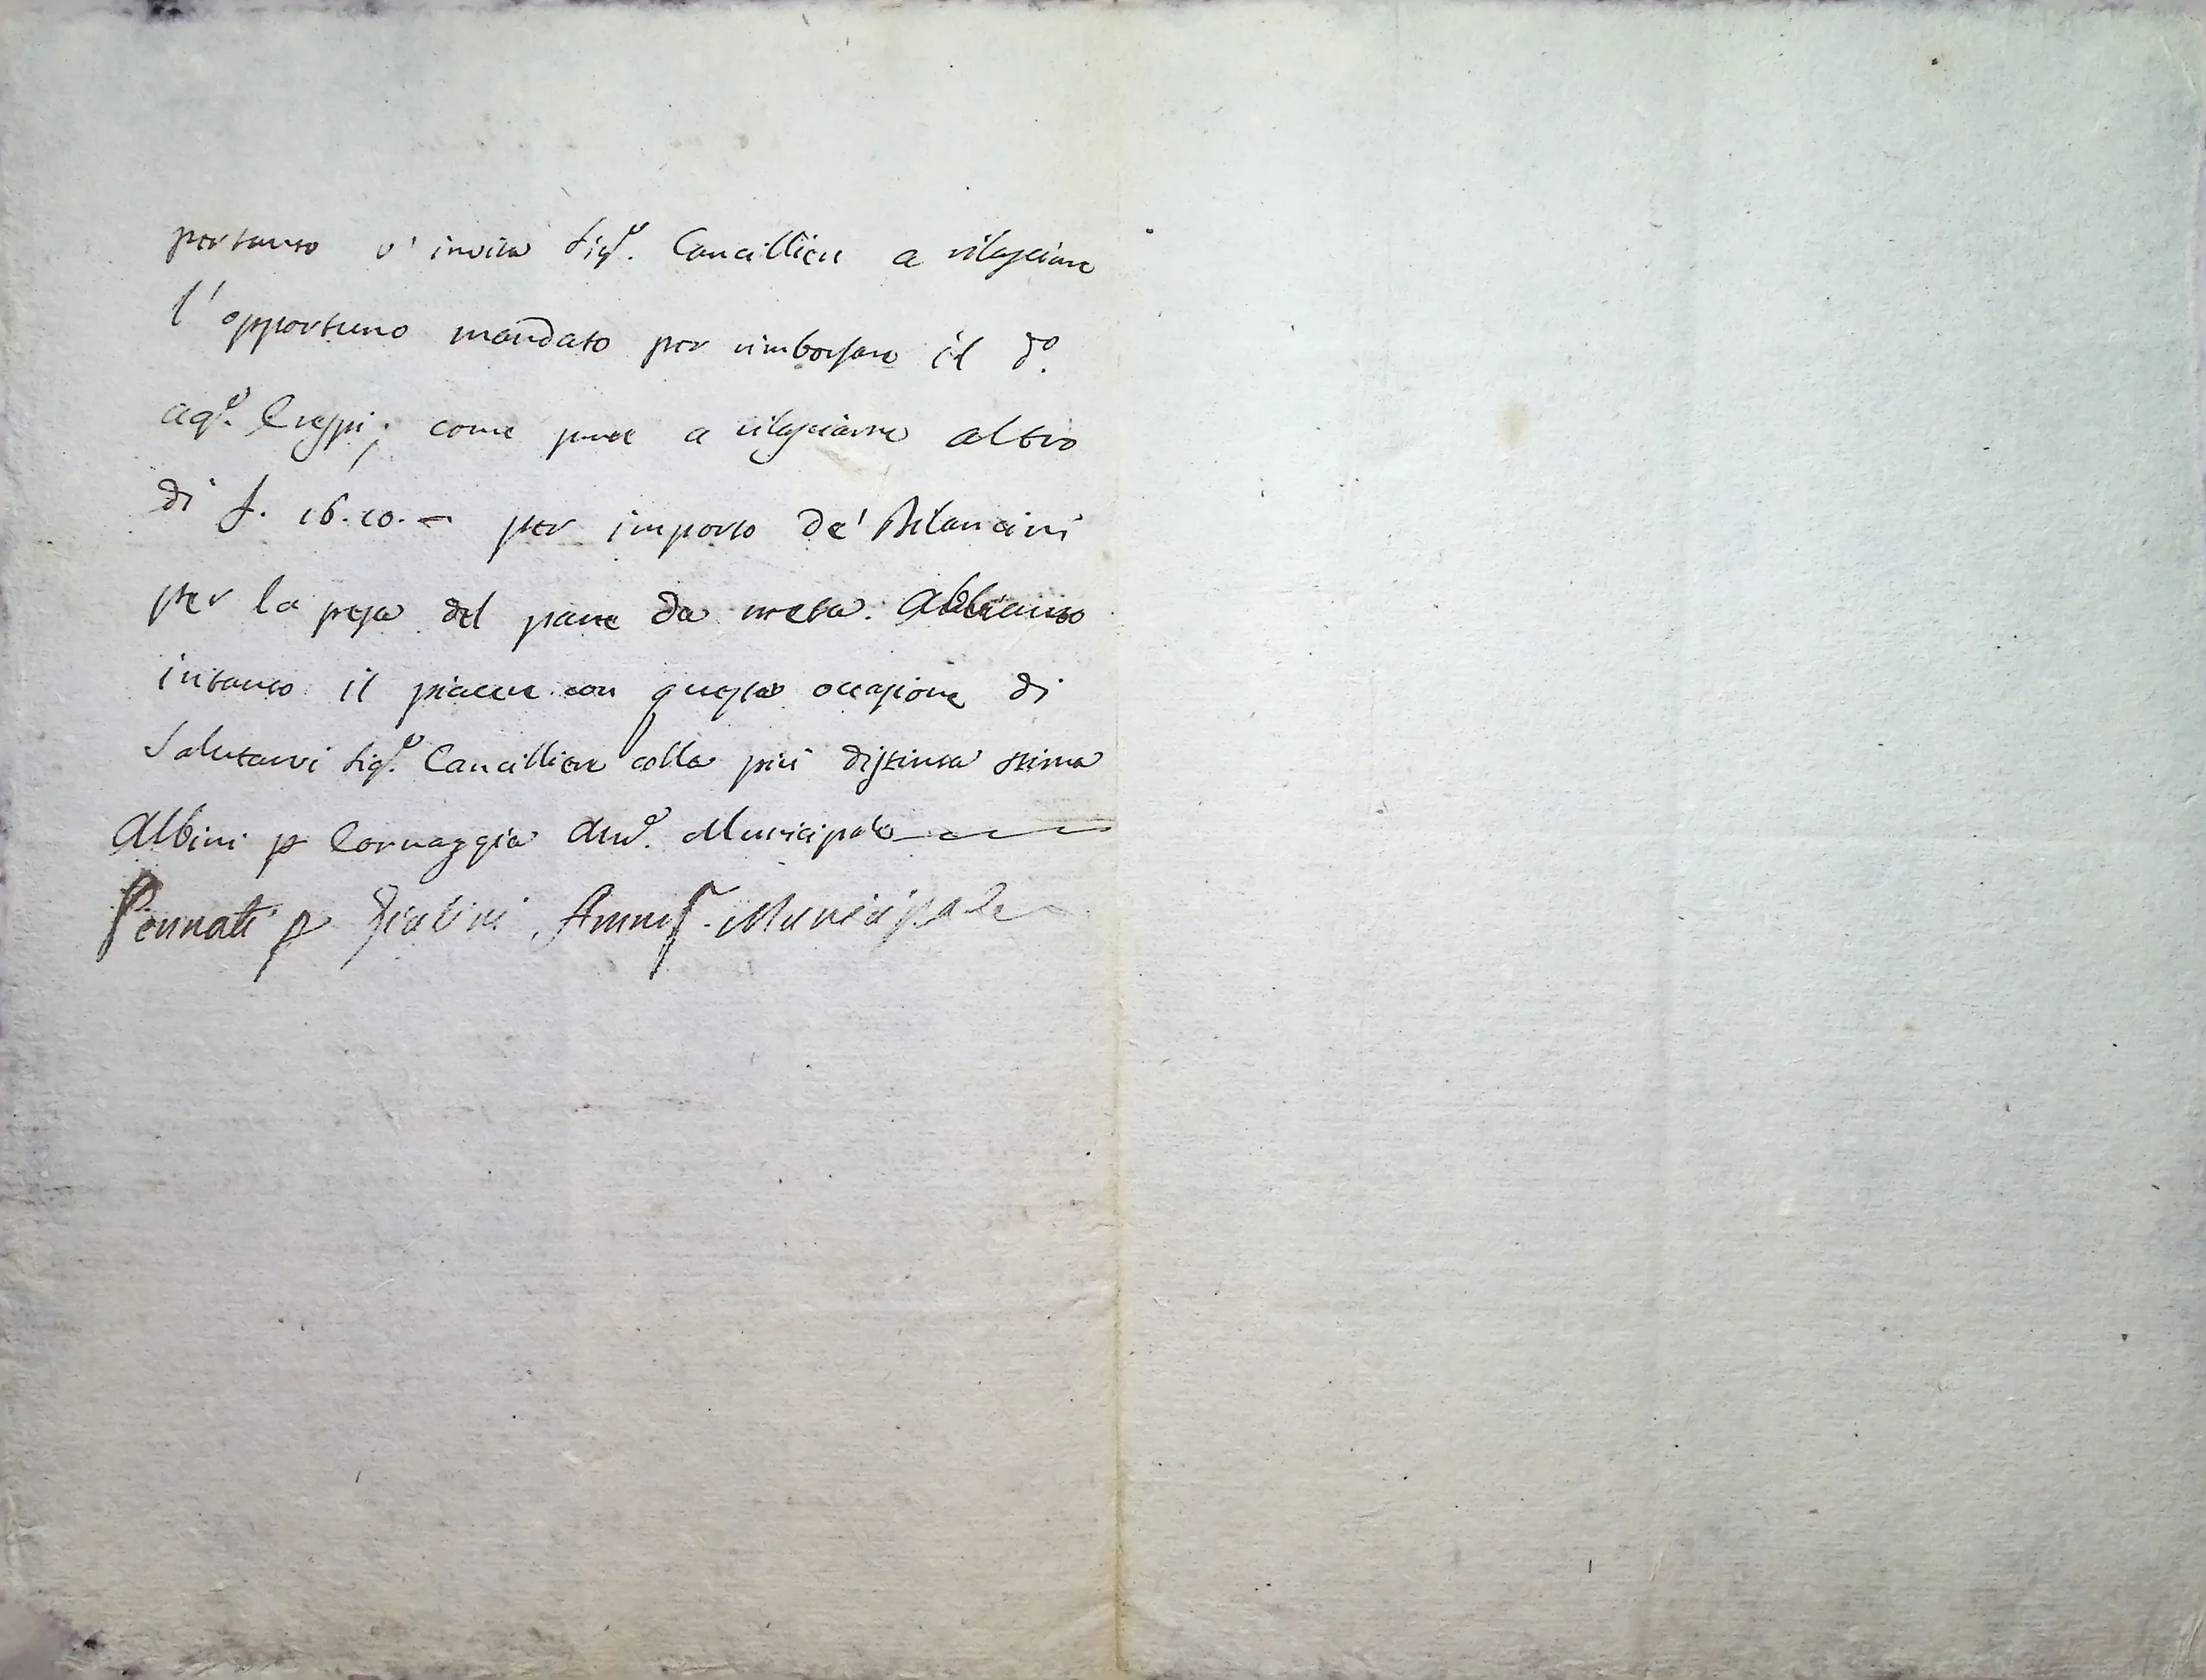 pertanto v'invita Sigr. Cancelliere a rilasciare
l'opportuno mandato per rimborsare il do.
Crespi; come pure a rilasciarne altro
di £. 16.10.- per importo de' Bilancini
per la pesa del pane da meta. Abbiamo
intanto il piacere con questa occasione di
salutarvi Sigr. Cancelliere colla più distinta stima
Albini p Cornaggia Amo. Municipale
Pennati p Giulini Amms. Municipale